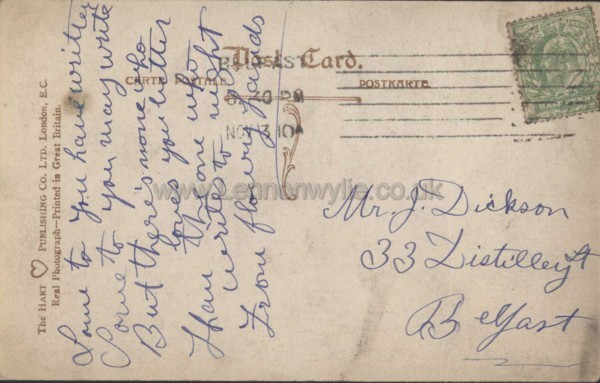 Post Card.
CARTE POSTALE
POSTKARTE.
The HART PUBLISHING CO. LTD. London, E.C.
Real Photograph—Printed in Great Britain.
8.30 PM
NOV 3 10
Some to you have written
Some to you may write
But there's none who
loves you better
Than the one who
writes to night
From flowery Lands
Mr. J. Dickson
33 Distillery St
Belfast
www.Lennonwylie.co.uk